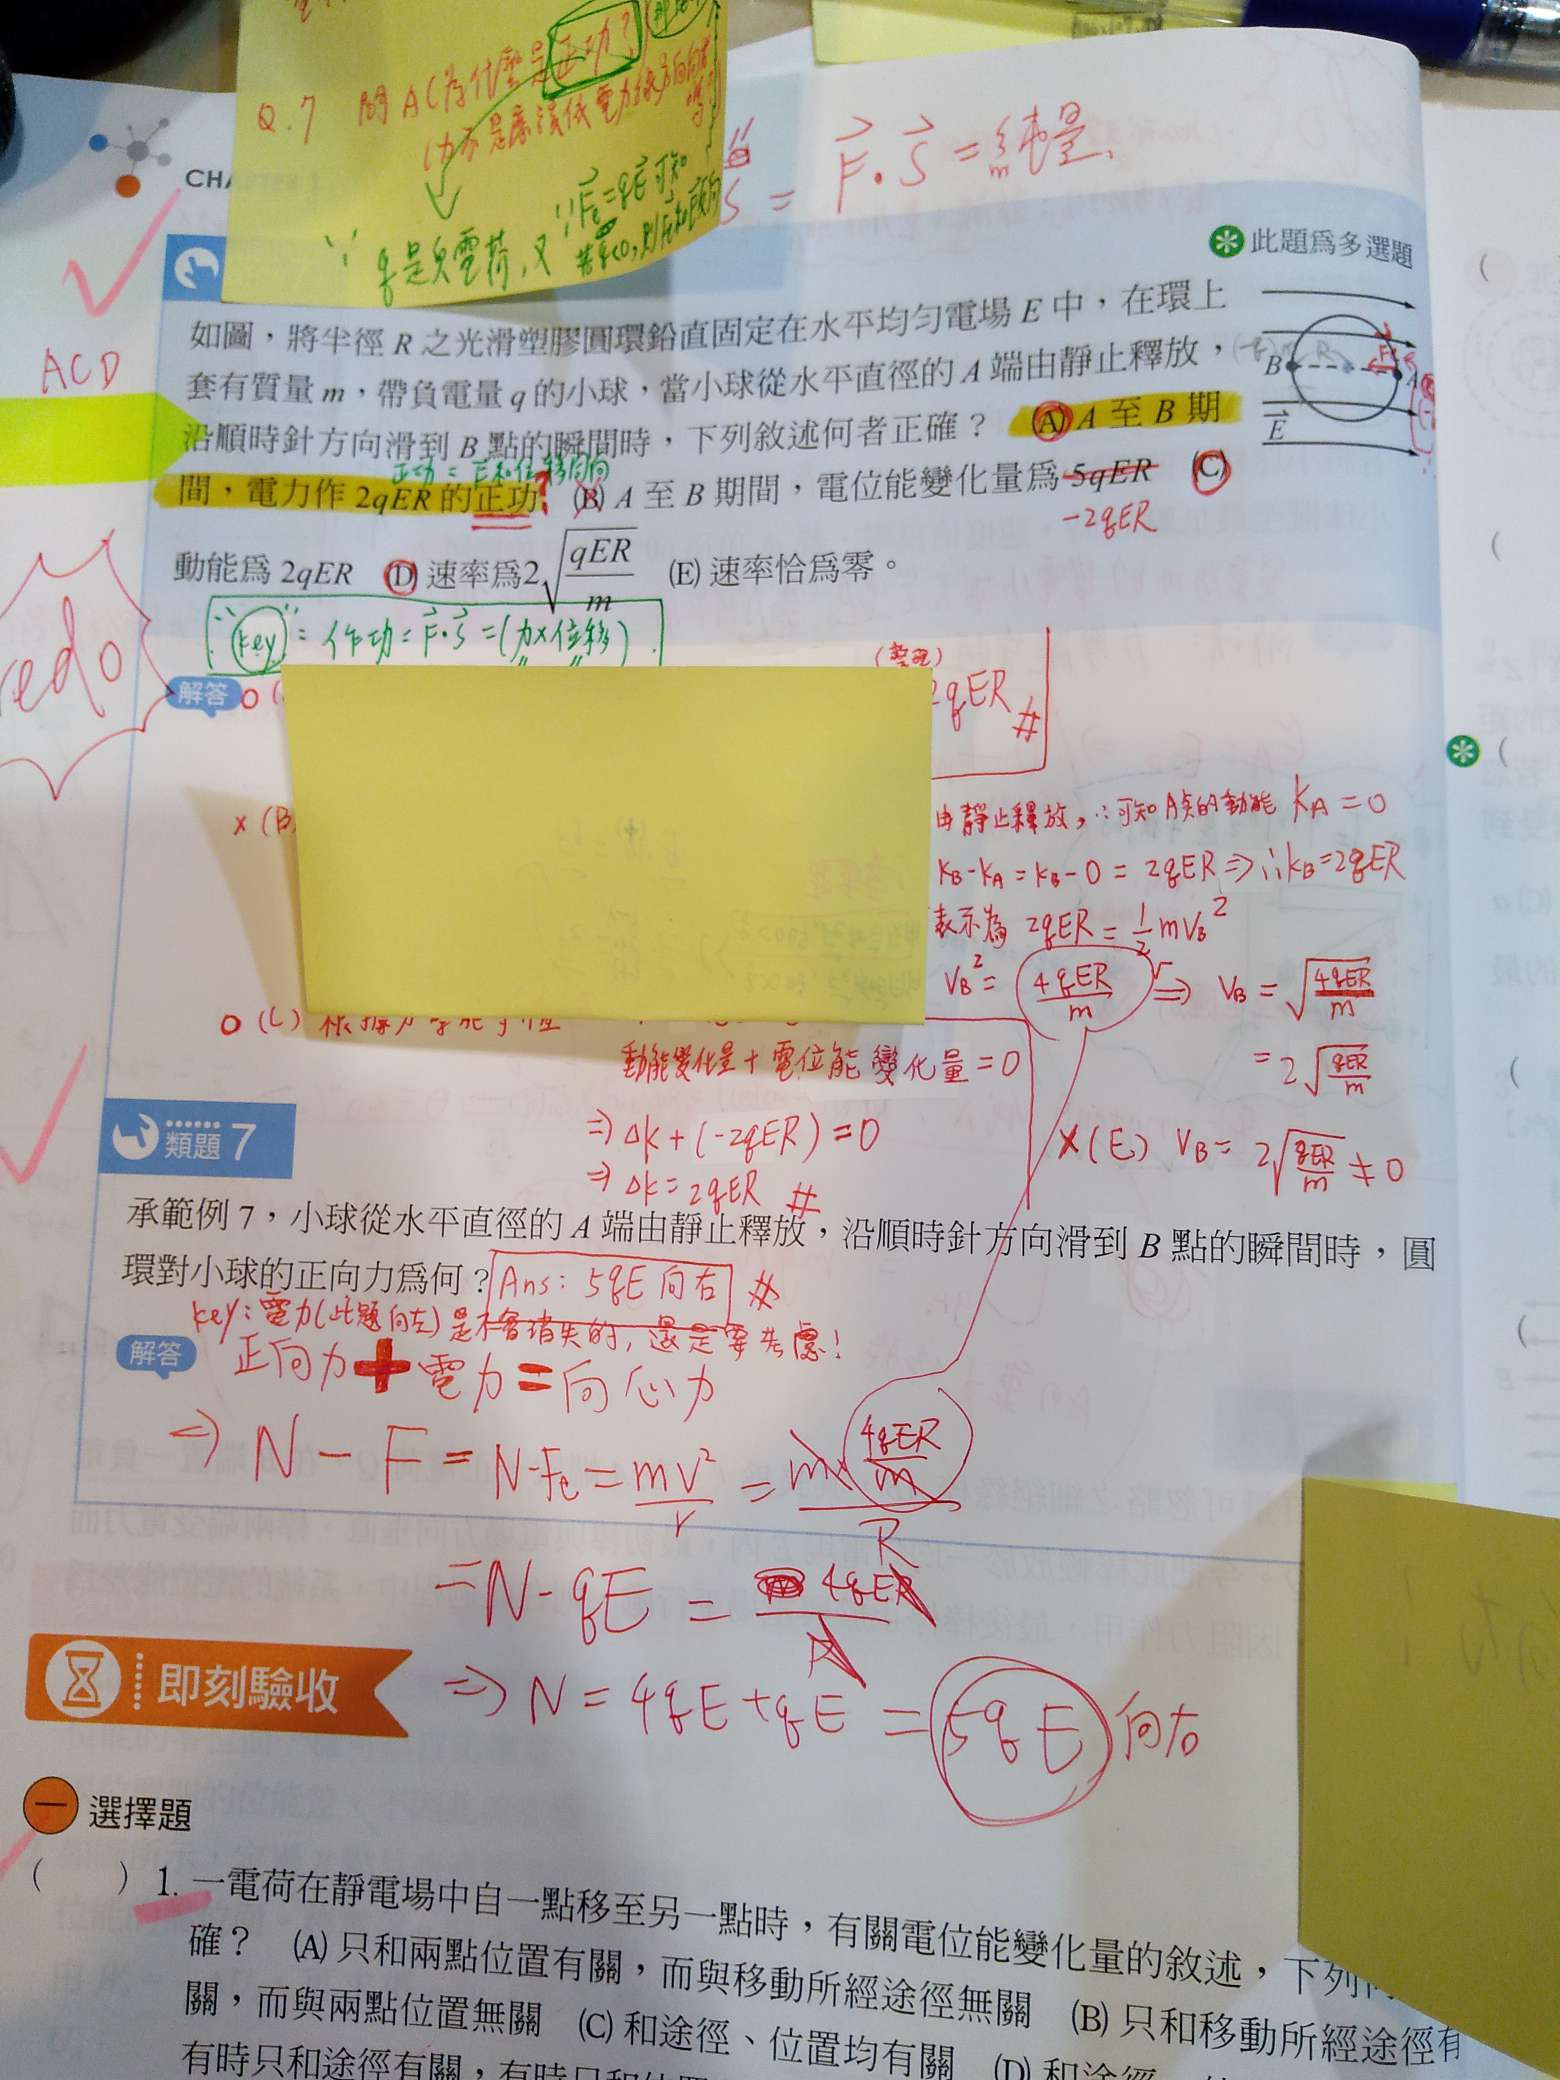 Q.7 問AC為什麼是正功?
(力不是應該依電力線方向向右嗎
∵ q是負電荷,又∵Fe=qE可知
若q<0,則F和E反向
S = F·S = 純量、
CHA
✽此題為多選題
如圖,將半徑 R 之光滑塑膠圓環鉛直固定在水平均勻電場 E 中,在環上
套有質量 m,帶負電量 q 的小球,當小球從水平直徑的 A 端由靜止釋放,
ACD
沿順時針方向滑到 B 點的瞬間時,下列敘述何者正確? (A) A 至 B 期
正功 = F和位移同向
間,電力作 2qER 的正功? (B) A 至 B 期間,電位能變化量為 5qER (C)
-2qER
動能為 2qER (D) 速率為2√(qER/m) (E) 速率恰為零。
B
R
A
E
"key" = 作功 = F·S = (力×位移)
redo
解答
(整理)
2qER #
x (B)
由靜止釋放,∴可知A點的動能 KA = 0
KB-KA = KB-0 = 2qER ⇒ ∴KB=2qER
表示為 2qER = 1/2 mVB²
VB² = 4qER/m ⇒ VB = √(4qER/m)
= 2√(qER/m)
O (C) 根據力學能守恆
動能變化量 + 電位能變化量 = 0
⇒ ΔK + (-2qER) = 0
⇒ ΔK = 2qER #
X (E) VB = 2√(qER/m) ≠ 0
類題 7
承範例 7,小球從水平直徑的 A 端由靜止釋放,沿順時針方向滑到 B 點的瞬間時,圓
環對小球的正向力為何? Ans: 5qE 向右 #
key: 電力(此題向左)是不會消失的,還是要考慮!
解答
正向力 + 電力 = 向心力
⇒ N - F = N-Fe = mV²/r = m×(4qER/m)/R
= N - qE = 4qER/R
⇒ N = 4qE + qE = 5qE 向右
即刻驗收
一 選擇題
( ) 1. 一電荷在靜電場中自一點移至另一點時,有關電位能變化量的敘述,下列
確? (A) 只和兩點位置有關,而與移動所經途徑無關 (B) 只和移動所經途徑有
關,而與兩點位置無關 (C) 和途徑、位置均有關 (D) 和途徑
有時只和途徑有關,有時只和